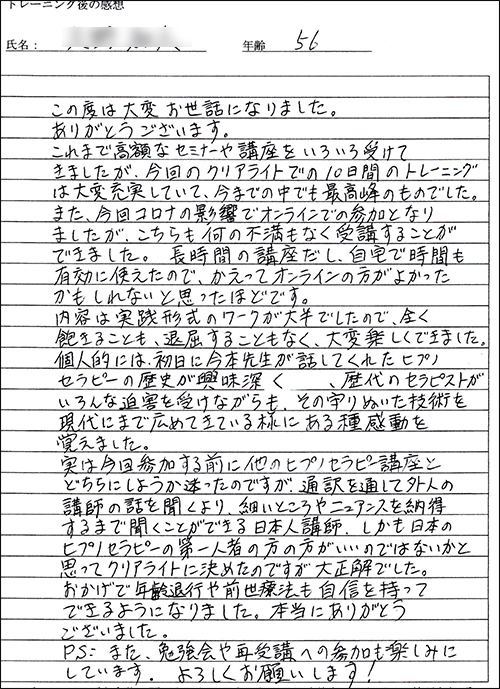 トレーニング後の感想
氏名:
年齢 56
この度は大変お世話になりました。
ありがとうございます。
これまで高額なセミナーや講座をいろいろ受けて
きましたが、今回のクリアライトでの10日間のトレーニング
は大変充実していて、今までの中でも最高峰のものでした。
また、今回コロナの影響でオンラインでの参加となり
ましたが、こちらも何の不満もなく受講することが
できました。 長時間の講座だし、自宅で時間も
有効に使えたので、かえってオンラインの方がよかった
かもしれないと思ったほどです。
内容は実践形式のワークが大半でしたので、全く
飽きることも、退屈することもなく、大変楽しくできました。
個人的には、初日に今本先生が話してくれたヒプノ
セラピーの歴史が興味深く 、歴代のセラピストが
いろんな迫害を受けながらも、その守りぬいた技術を
現代にまで広めてきている様にある種感動を
覚えました。
実は今回参加する前に他のヒプノセラピー講座と
どちらにしようか迷ったのですが、通訳を通して外人の
講師の話を聞くより、細いところやニュアンスを納得
するまで聞くことができる日本人講師、しかも日本の
ヒプノセラピーの第一人者の方の方がいいのではないかと
思ってクリアライトに決めたのですが大正解でした。
おかげで年齢退行や前世療法も自信を持って
できるようになりました。本当にありがとう
ございました。
PS: また、勉強会や再受講への参加も楽しみに
しています。 よろしくお願いします!